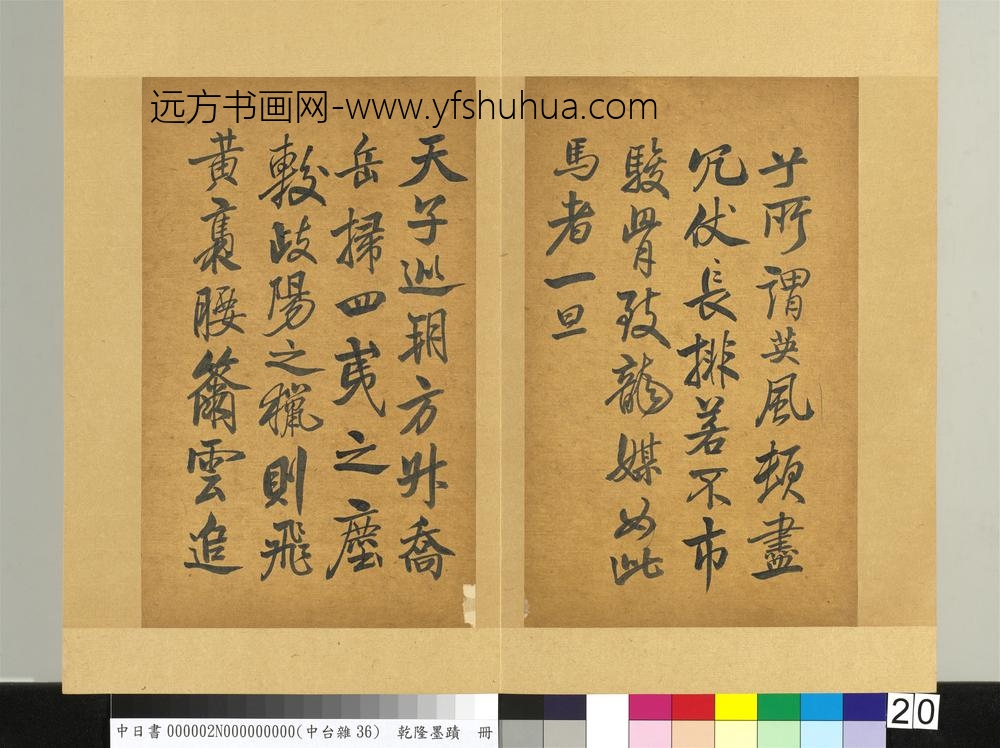 远方书画网-www.yfshuhua.com
兮所謂英風頓盡
冗仗長排若不市
駿骨致龍媒如此
馬者一旦
天子巡朔方升喬
岳掃四夷之塵
較岐陽之獵則飛
黃褭腰籋雲追
中日書000002N000000000(中台雜36) 乾隆墨蹟 冊
20